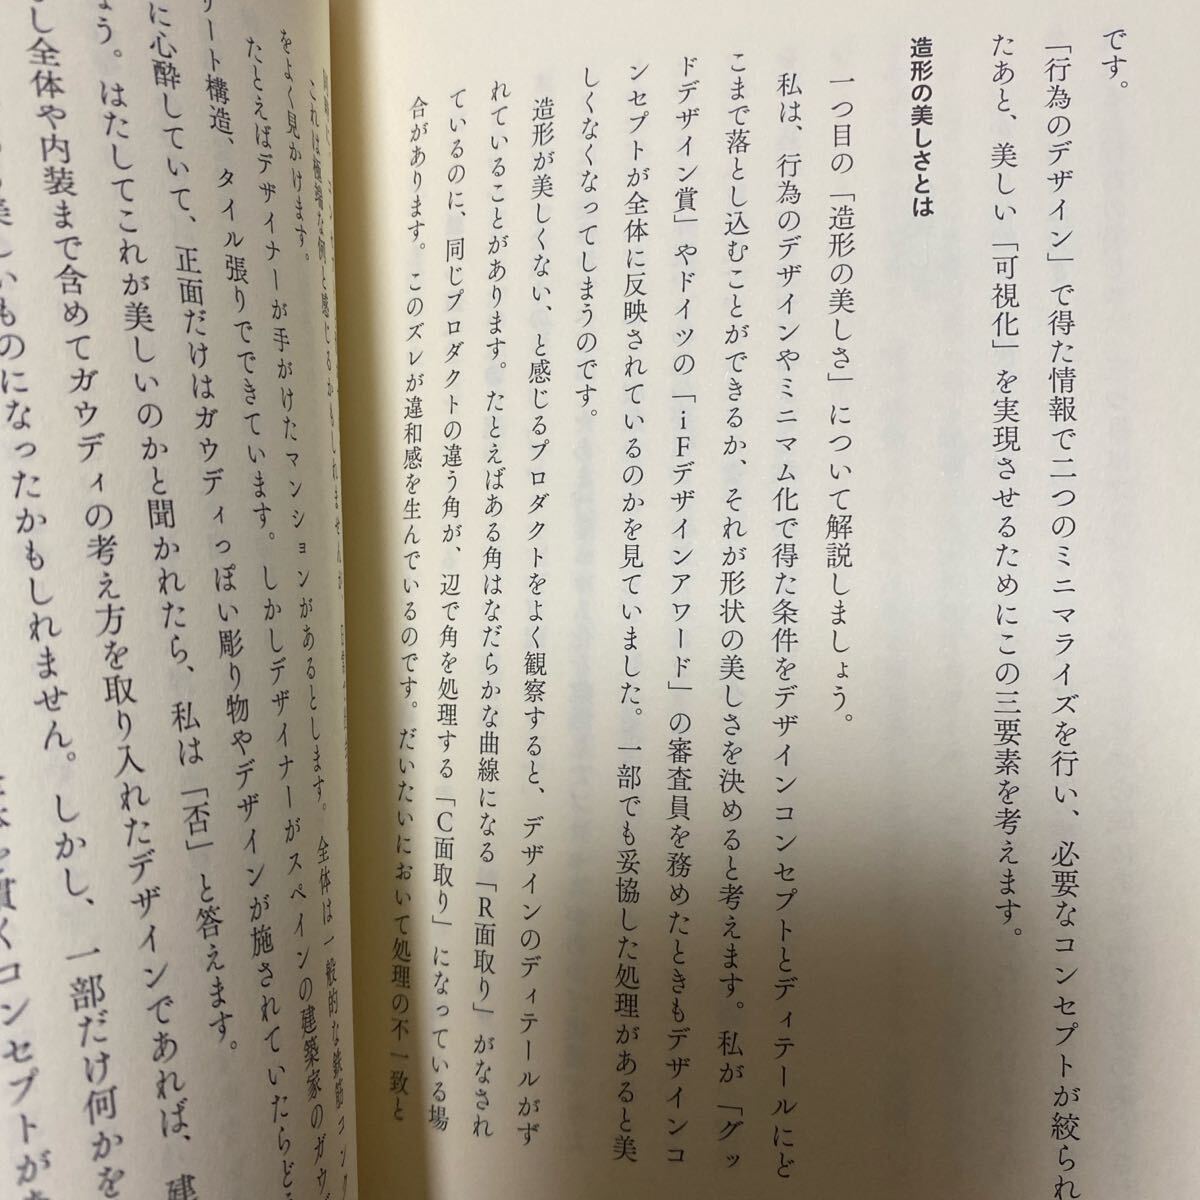 です。
「行為のデザイン」で得た情報で二つのミニマライズを行い、必要なコンセプトが絞られ
たあと、美しい「可視化」を実現させるためにこの三要素を考えます。
造形の美しさとは
一つ目の「造形の美しさ」について解説しましょう。
私は、行為のデザインやミニマム化で得た条件をデザインコンセプトとディテールにど
こまで落とし込むことができるか、それが形状の美しさを決めると考えます。私が「グッ
ドデザイン賞」やドイツの「iFデザインアワード」の審査員を務めたときもデザインコ
ンセプトが全体に反映されているのかを見ていました。一部でも妥協した処理があると美
しくなくなってしまうのです。
造形が美しくない、と感じるプロダクトをよく観察すると、デザインのディテールがず
れていることがあります。たとえばある角はなだらかな曲線になる「R面取り」がなされ
ているのに、同じプロダクトの違う角が、辺で角を処理する「C面取り」になっている場
合があります。このズレが違和感を生んでいるのです。だいたいにおいて処理の不一致と
これは極端な例と感じるかもしれませんが、
をよく見かけます。
たとえばデザイナーが手がけたマンションがあるとします。全体は一般的な鉄筋コンク
リート構造、タイル張りでできています。しかしデザイナーがスペインの建築家のガウデ
に心酔していて、正面だけはガウディっぽい彫り物やデザインが施されていたらど
ょう。はたしてこれが美しいのかと聞かれたら、私は「否」と答えます。
し全体や内装まで含めてガウディの考え方を取り入れたデザインであれば、建
美しいものになったかもしれません。しかし、一部だけ何かを
貫くコンセプトが